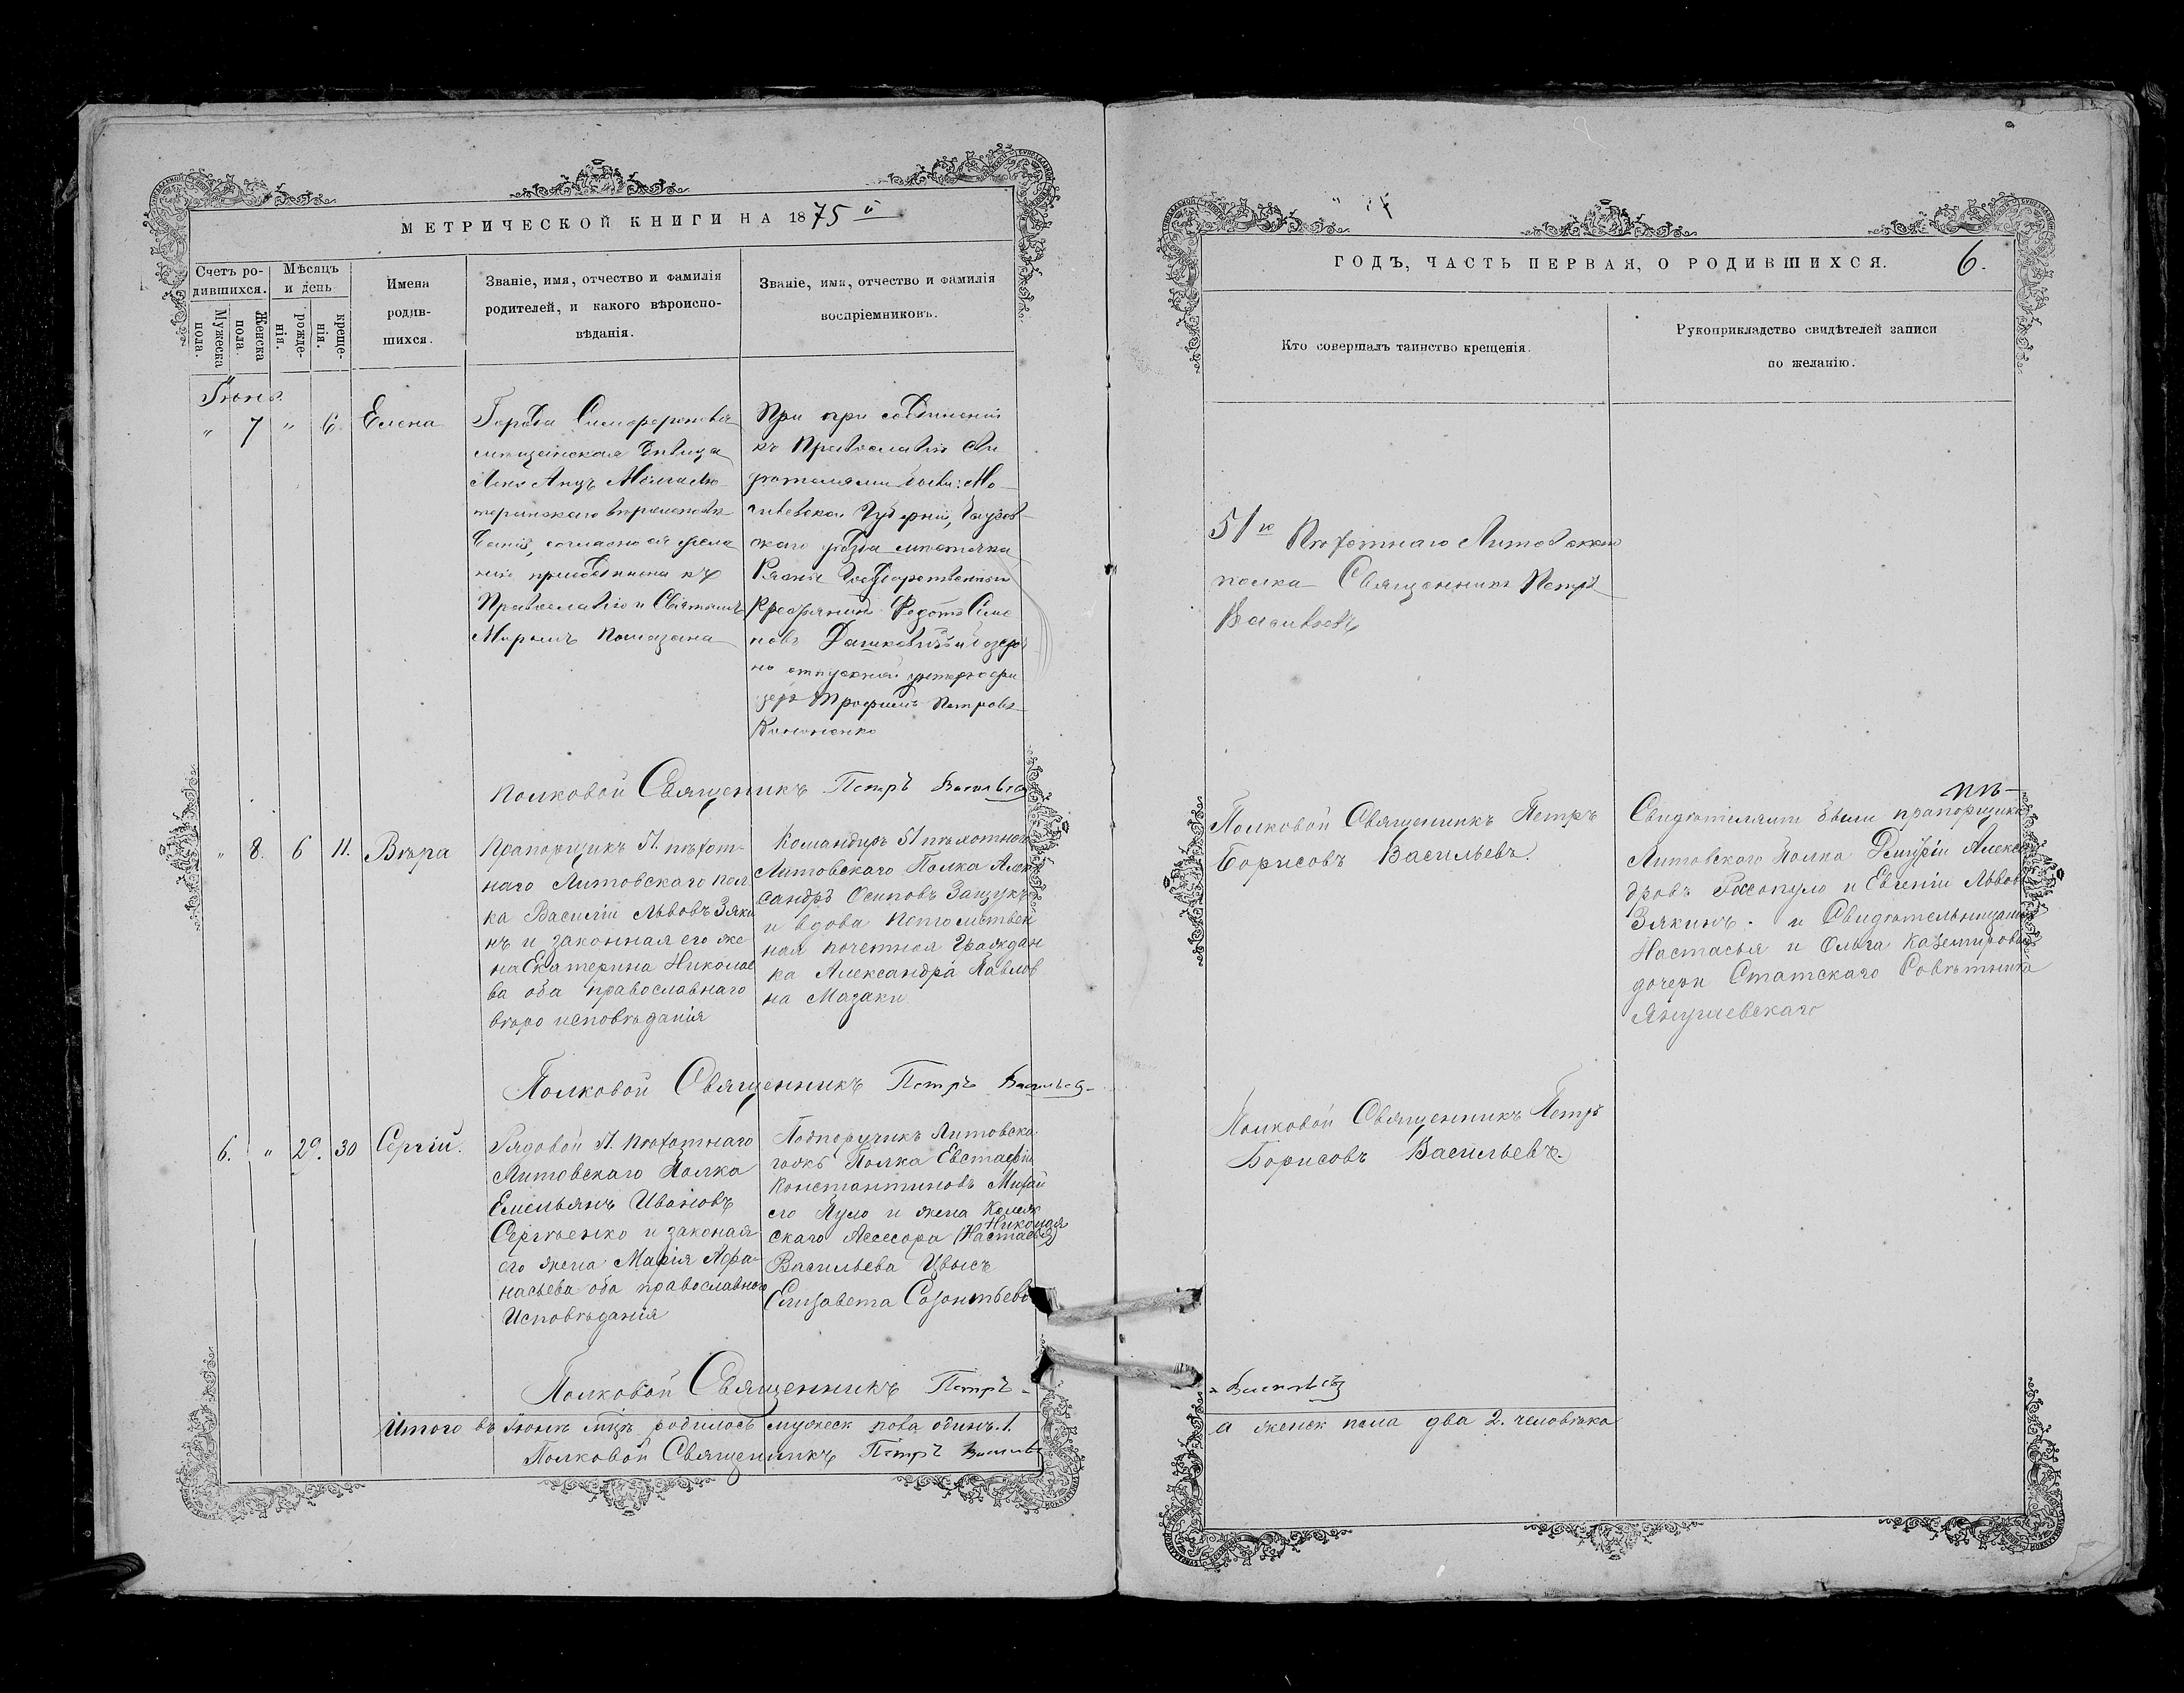 МЕТРИЧЕСКОЙ КНИГИ НА 1875 й
Счетъ ро-
дившихся.
Мѣсяцъ
и день
Мужеска
пола.
Женска
пола.
рожде-
нія.
креще-
нія.
Имена
родив-
шихся.
Званіе, имя, отчество и фамилія
родителей, и какого вѣроиспо-
вѣданія.
Званіе, имя, отчество и фамилія
воспріемниковъ.
Іюнь
" 7 " 6 Елена
Города Симферополя
мѣщанская дѣвица
вѣроисповѣ
данія, согласно ея жела
нію присоединена къ
Православію и Святымъ
Миромъ Помазана
При присоединеніи
къ Православію Сви
дѣтелями были: Мо
гилевской Губерніи,
скаго уѣзда мѣстечка
Государственный
Крестьянинъ Федотъ Семе
новъ Дашкевичъ и
отпускной унтеръ офи
церъ Трофимъ Петровъ
Кононенко
Полковой Священникъ Петръ Васильев
" 8. 6 11. Вѣра
Прапорщикъ 51. пѣхот-
наго Литовскаго пол
ка Василій Львовъ Зяки
нъ и законная его же
на Екатерина Николае
ва оба православнаго
вѣро исповѣданія
Командиръ 51 пѣхотнаго
Литовскаго Полка Алек
сандръ Осиповъ Защукъ
и вдова Потомствен
ная почетная Граждан
ка Александра Павлов
на Мазаки
Полковой Священникъ Петръ Васильев
6. " 29. 30 Сергій.
Рядовой 51. Пѣхотнаго
Литовскаго Полка
Емельянъ Ивановъ
Сергѣенко и законая
его жена Марія Афа-
насьева оба православного
Исповѣданія
Подпоручикъ Литовска
го Полка Евстафій
Константиновъ Михай
ло Пуло и жена Колеж
скаго Асесора
Васильева
Елизавета Созонтьева
Полковой Священникъ Петръ -
Итого въ Іюнѣ мцѣ родилось мужеск пола одинъ. 1.
Полковой Священникъ Петръ Василье
ГОДЪ, ЧАСТЬ ПЕРВАЯ, О РОДИВШИХСЯ.
6.
Кто совершалъ таинство крещенія.
Рукоприкладство свидѣтелей записи
по желанію.
51го Пѣхотнаго Литовскаго
полка Священникъ Петръ
Васильевъ
Полковой Священикъ Петръ
Борисовъ Васильевъ.
Свидѣтелями были прапорщики
Литовскаго Полка Дмитрій Алексан
дровъ и Евгеній Львовъ
Зякинъ. и Свидѣтельницами
Настасья и Ольга Каземировы
дочери Статскаго Совѣтника
Янушевскаго
Полковой Священникъ Петръ
Борисовъ Васильевъ.
- Васильевъ
а женск пола два 2. человѣка